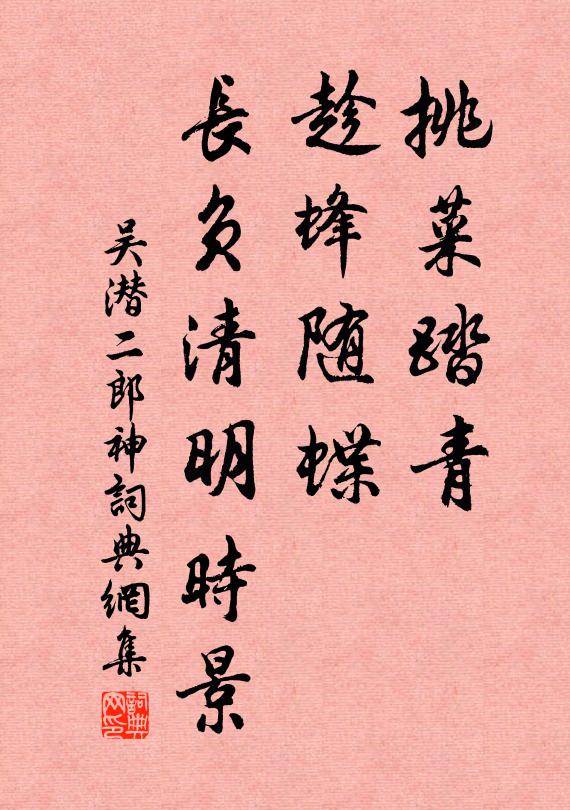 挑菜踏青
趁蜂随蝶
長負清明時景
吴潛二郎神詞典網集
詞典网印